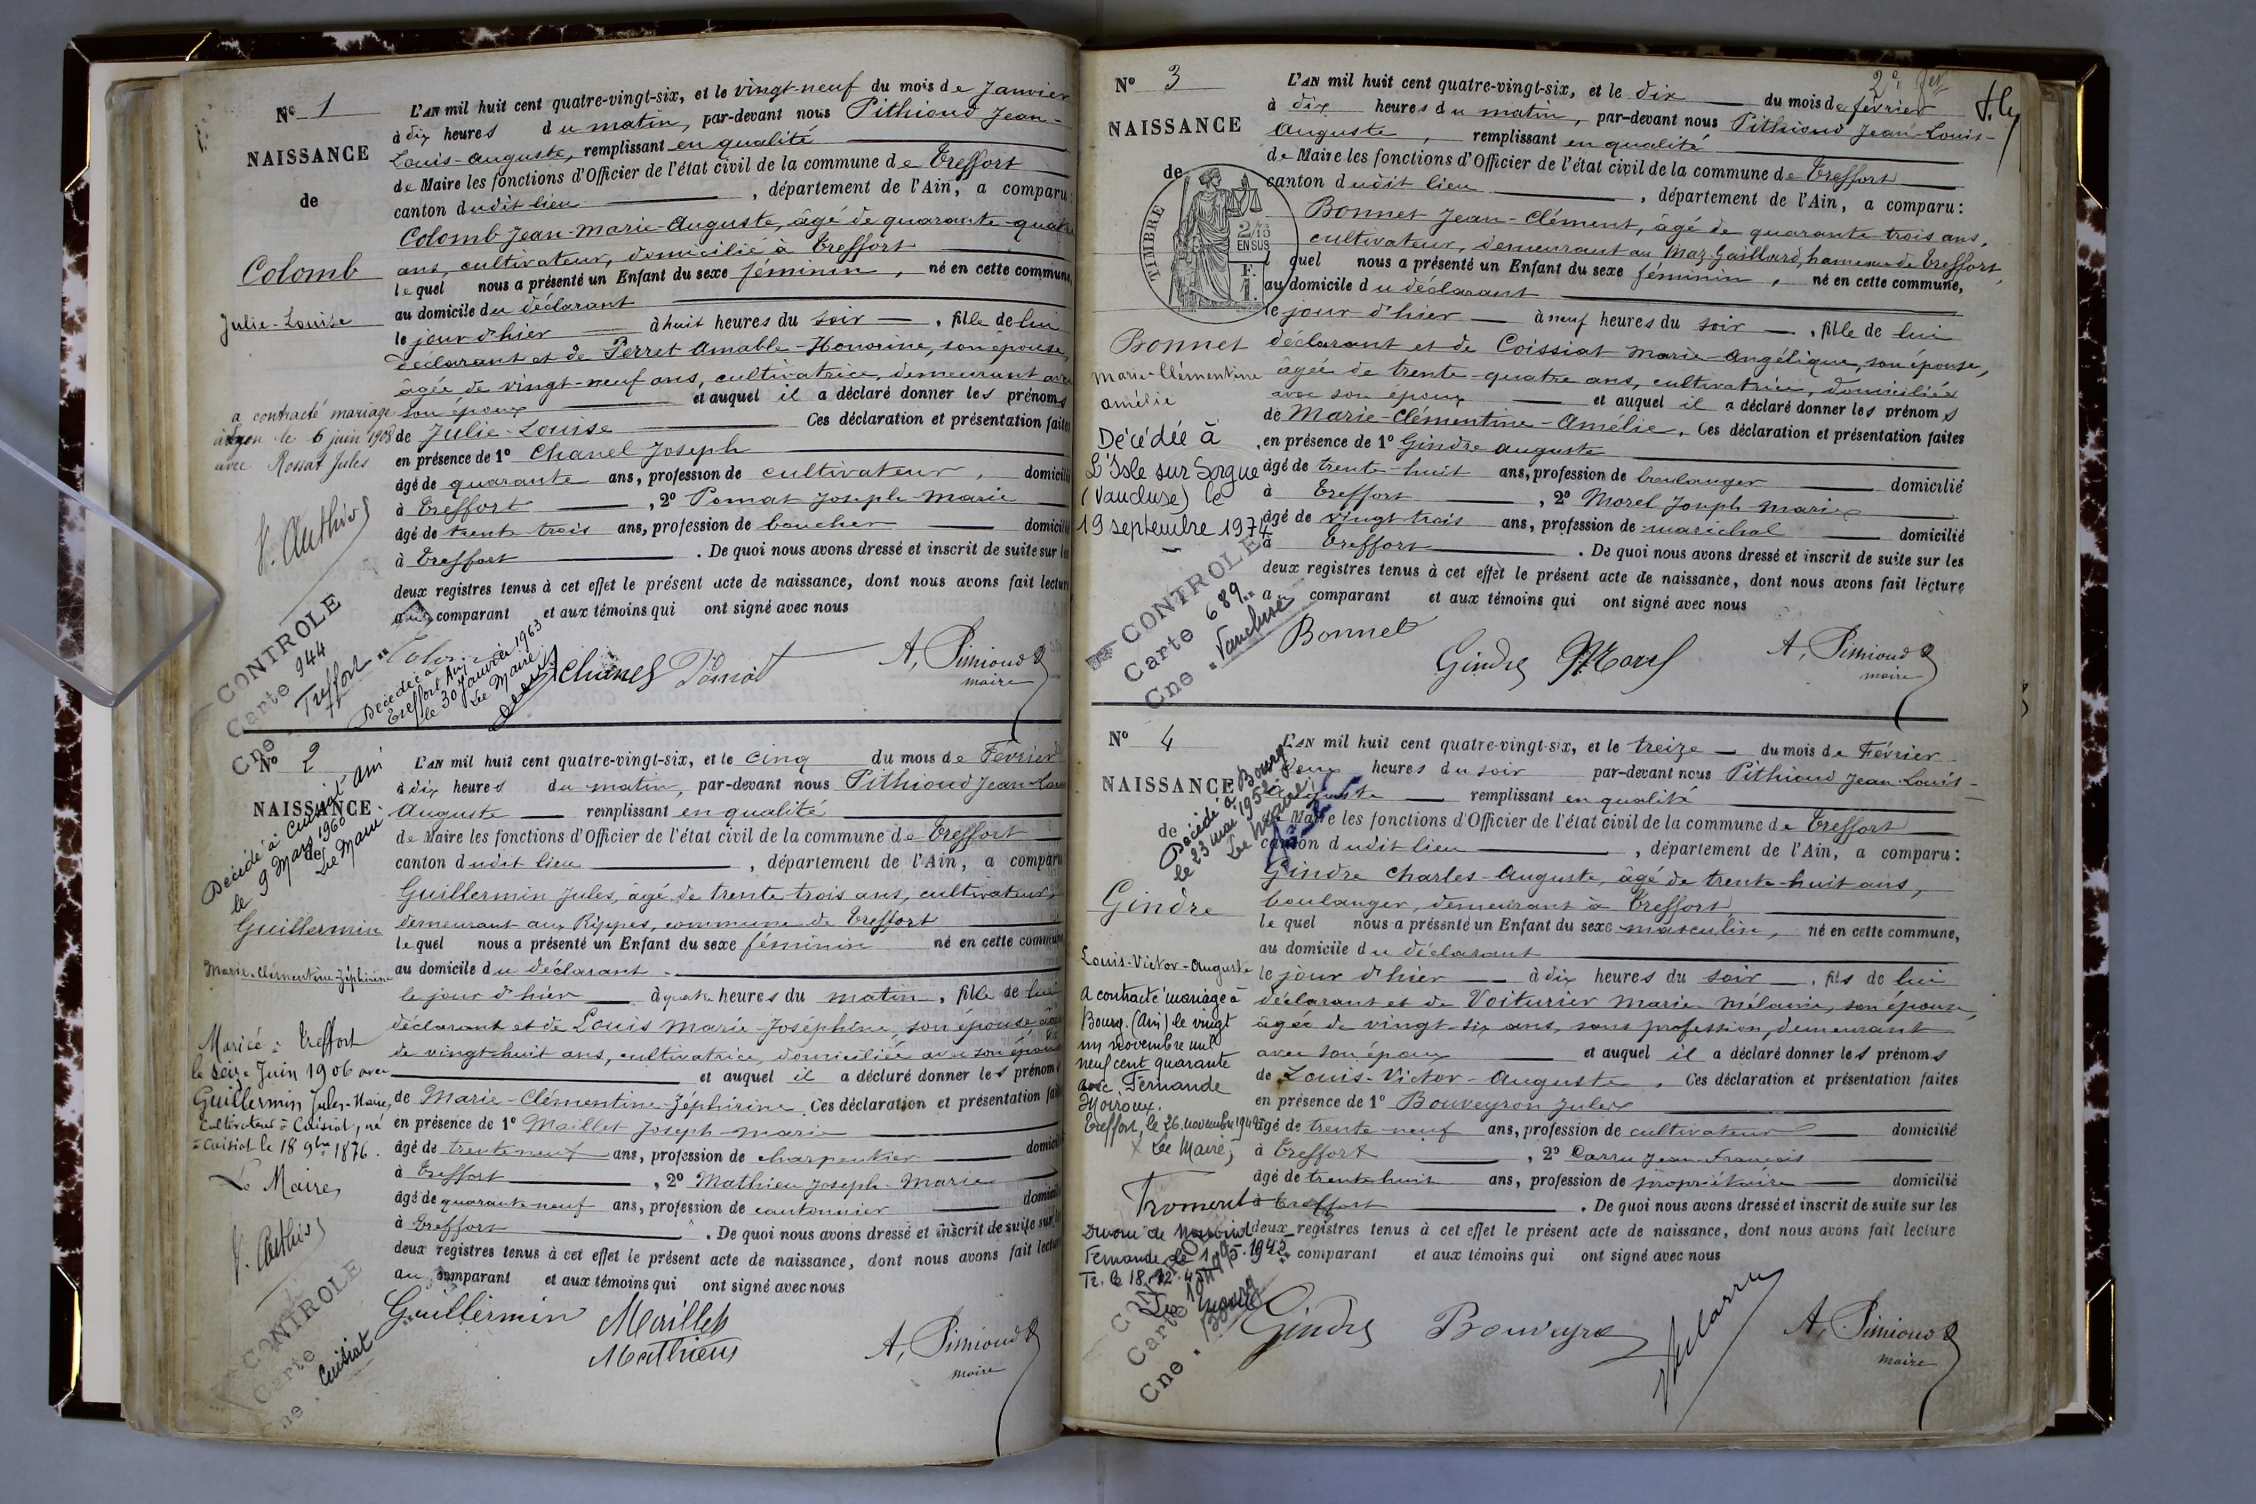 N° 1
NAISSANCE
de
Colomb
Julie-Louise
a contracté mariage
à Lyon le 6 juin 1908
avec Rossat Jules
CONTROLE
Carte 944
Cne Treffort
L'AN mil huit cent quatre-vingt-six, et le vingt-neuf du mois de Janvier
à dix heures du matin, par-devant nous Pithioud Jean-
Louis-Auguste, remplissant en qualité
de Maire les fonctions d'Officier de l'état civil de la commune de Treffort
canton dudit lieu, département de l'Ain, a comparu:
Colomb Jean-Marie-Auguste, âgé de quarante-quatre
ans, cultivateur, domicilié à Treffort
lequel nous a présenté un Enfant du sexe féminin, né en cette commune,
au domicile du déclarant
le jour d'hier à huit heures du soir, fille de lui
déclarant et de Perret Amable-Honorine, son épouse,
âgée de vingt-neuf ans, cultivatrice, demeurant avec
son époux et auquel il a déclaré donner les prénoms
de Julie-Louise Ces déclaration et présentation faites
en présence de 1° Chanel Joseph
âgé de quarante ans, profession de cultivateur, domicilié
à Treffort, 2° Pomat Joseph-Marie
âgé de trente-trois ans, profession de boucher domicilié
à Treffort. De quoi nous avons dressé et inscrit de suite sur les
deux registres tenus à cet effet le présent acte de naissance, dont nous avons fait lecture
au comparant et aux témoins qui ont signé avec nous
Décédée à
Treffort Ain
le 30 janvier 1963
Le Maire
Chanel Pomat A. Pithioud
maire
N° 2
NAISSANCE
de
Décédé à Cuisiat Ain
le 9 Mars 1960
Le Maire
Guillermin
Marie-Clémentine-Zéphirine
Mariée à Treffort
le seize Juin 1906 avec
Guillermin Jules-Marie,
cultivateur à Cuisiat, né
à Cuisiat le 18 9bre 1876.
Le Maire,
CONTROLE
Carte
Cne. Cuisiat
L'AN mil huit cent quatre-vingt-six, et le cinq du mois de Février
à dix heures du matin, par-devant nous Pithioud Jean-Louis
Auguste remplissant en qualité
de Maire les fonctions d'Officier de l'état civil de la commune de Treffort
canton dudit lieu, département de l'Ain, a comparu
Guillermin Jules, âgé de trente-trois ans, cultivateur,
demeurant aux Rippes, commune de Treffort
lequel nous a présenté un Enfant du sexe féminin né en cette commune
au domicile du déclarant.
le jour d'hier à quatre heures du matin, fille de lui
déclarant et de Louis Marie-Joséphine, son épouse âgée
de vingt-huit ans, cultivatrice, domiciliée avec son époux
et auquel il a déclaré donner les prénoms
de Marie-Clémentine-Zéphirine. Ces déclaration et présentation faites
en présence de 1° Maillet Joseph-Marie
âgé de trente-neuf ans, profession de charpentier domicilié
à Treffort, 2° Mathieu Joseph-Marie
âgé de quarante-neuf ans, profession de cantonnier domicilié
à Treffort. De quoi nous avons dressé et inscrit de suite sur les
deux registres tenus à cet effet le présent acte de naissance, dont nous avons fait lecture
au comparant et aux témoins qui ont signé avec nous
Guillermin Maillet
Mathieu A. Pithioud
maire
N° 3
NAISSANCE
de
TIMBRE
2/10
EN SUS
Bonnet
Marie-Clémentine
Amélie
Décédée à
L'Isle sur Sorgue
(Vaucluse) le
19 septembre 1974
CONTROLE
Carte 689
Cne. Vaucluse
L'AN mil huit cent quatre-vingt-six, et le dix du mois de février
à dix heures du matin, par-devant nous Pithioud Jean-Louis-
Auguste, remplissant en qualité
de Maire les fonctions d'Officier de l'état civil de la commune de Treffort
canton dudit lieu, département de l'Ain, a comparu:
Bonnet Jean-Clément, âgé de quarante-trois ans,
cultivateur, demeurant au Maz-Gaillard, hameau de Treffort,
lequel nous a présenté un Enfant du sexe féminin, né en cette commune,
au domicile du déclarant
le jour d'hier à neuf heures du soir, fille de lui
déclarant et de Coissiat Marie-Angélique, son épouse,
âgée de trente-quatre ans, cultivatrice, domiciliée
avec son époux et auquel il a déclaré donner les prénoms
de Marie-Clémentine-Amélie. Ces déclaration et présentation faites
en présence de 1° Gindre Auguste
âgé de trente-huit ans, profession de boulanger domicilié
à Treffort, 2° Morel Joseph Marie
âgé de vingt-trois ans, profession de maréchal domicilié
à Treffort. De quoi nous avons dressé et inscrit de suite sur les
deux registres tenus à cet effet le présent acte de naissance, dont nous avons fait lecture
a comparant et aux témoins qui ont signé avec nous
Bonnet Gindre Morel A. Pithioud
maire
N° 4
NAISSANCE
de
Décédé à Bourg
le 23 mai 1952
Le Maire,
Gindre
Louis-Victor-Auguste
A contracté mariage à
Bourg (Ain) le vingt
un novembre mil
neuf cent quarante
avec Fernande
Moiroux.
Treffort, le 26 novembre 1940
Le Maire,
Divorcé de
Fernande
CONTROLE
Carte
Cne. Bourg
L'AN mil huit cent quatre-vingt-six, et le treize du mois de Février
deux heures du soir par-devant nous Pithioud Jean-Louis-
Auguste remplissant en qualité
de Maire les fonctions d'Officier de l'état civil de la commune de Treffort
canton dudit lieu, département de l'Ain, a comparu:
Gindre Charles-Auguste, âgé de trente-huit ans,
boulanger, demeurant à Treffort
lequel nous a présenté un Enfant du sexe masculin, né en cette commune,
au domicile du déclarant
le jour d'hier à dix heures du soir, fils de lui
déclarant et de Voiturier Marie Mélanie, son épouse,
âgée de vingt-six ans, sans profession, demeurant
avec son époux et auquel il a déclaré donner les prénoms
de Louis-Victor-Auguste. Ces déclaration et présentation faites
en présence de 1° Bouveyron Jules
âgé de trente-neuf ans, profession de cultivateur domicilié
à Treffort, 2° Carru Jean-François
âgé de trente-huit ans, profession de propriétaire domicilié
à Treffort. De quoi nous avons dressé et inscrit de suite sur les
deux registres tenus à cet effet le présent acte de naissance, dont nous avons fait lecture
comparant et aux témoins qui ont signé avec nous
Gindre Bouveyron A. Pithioud
maire